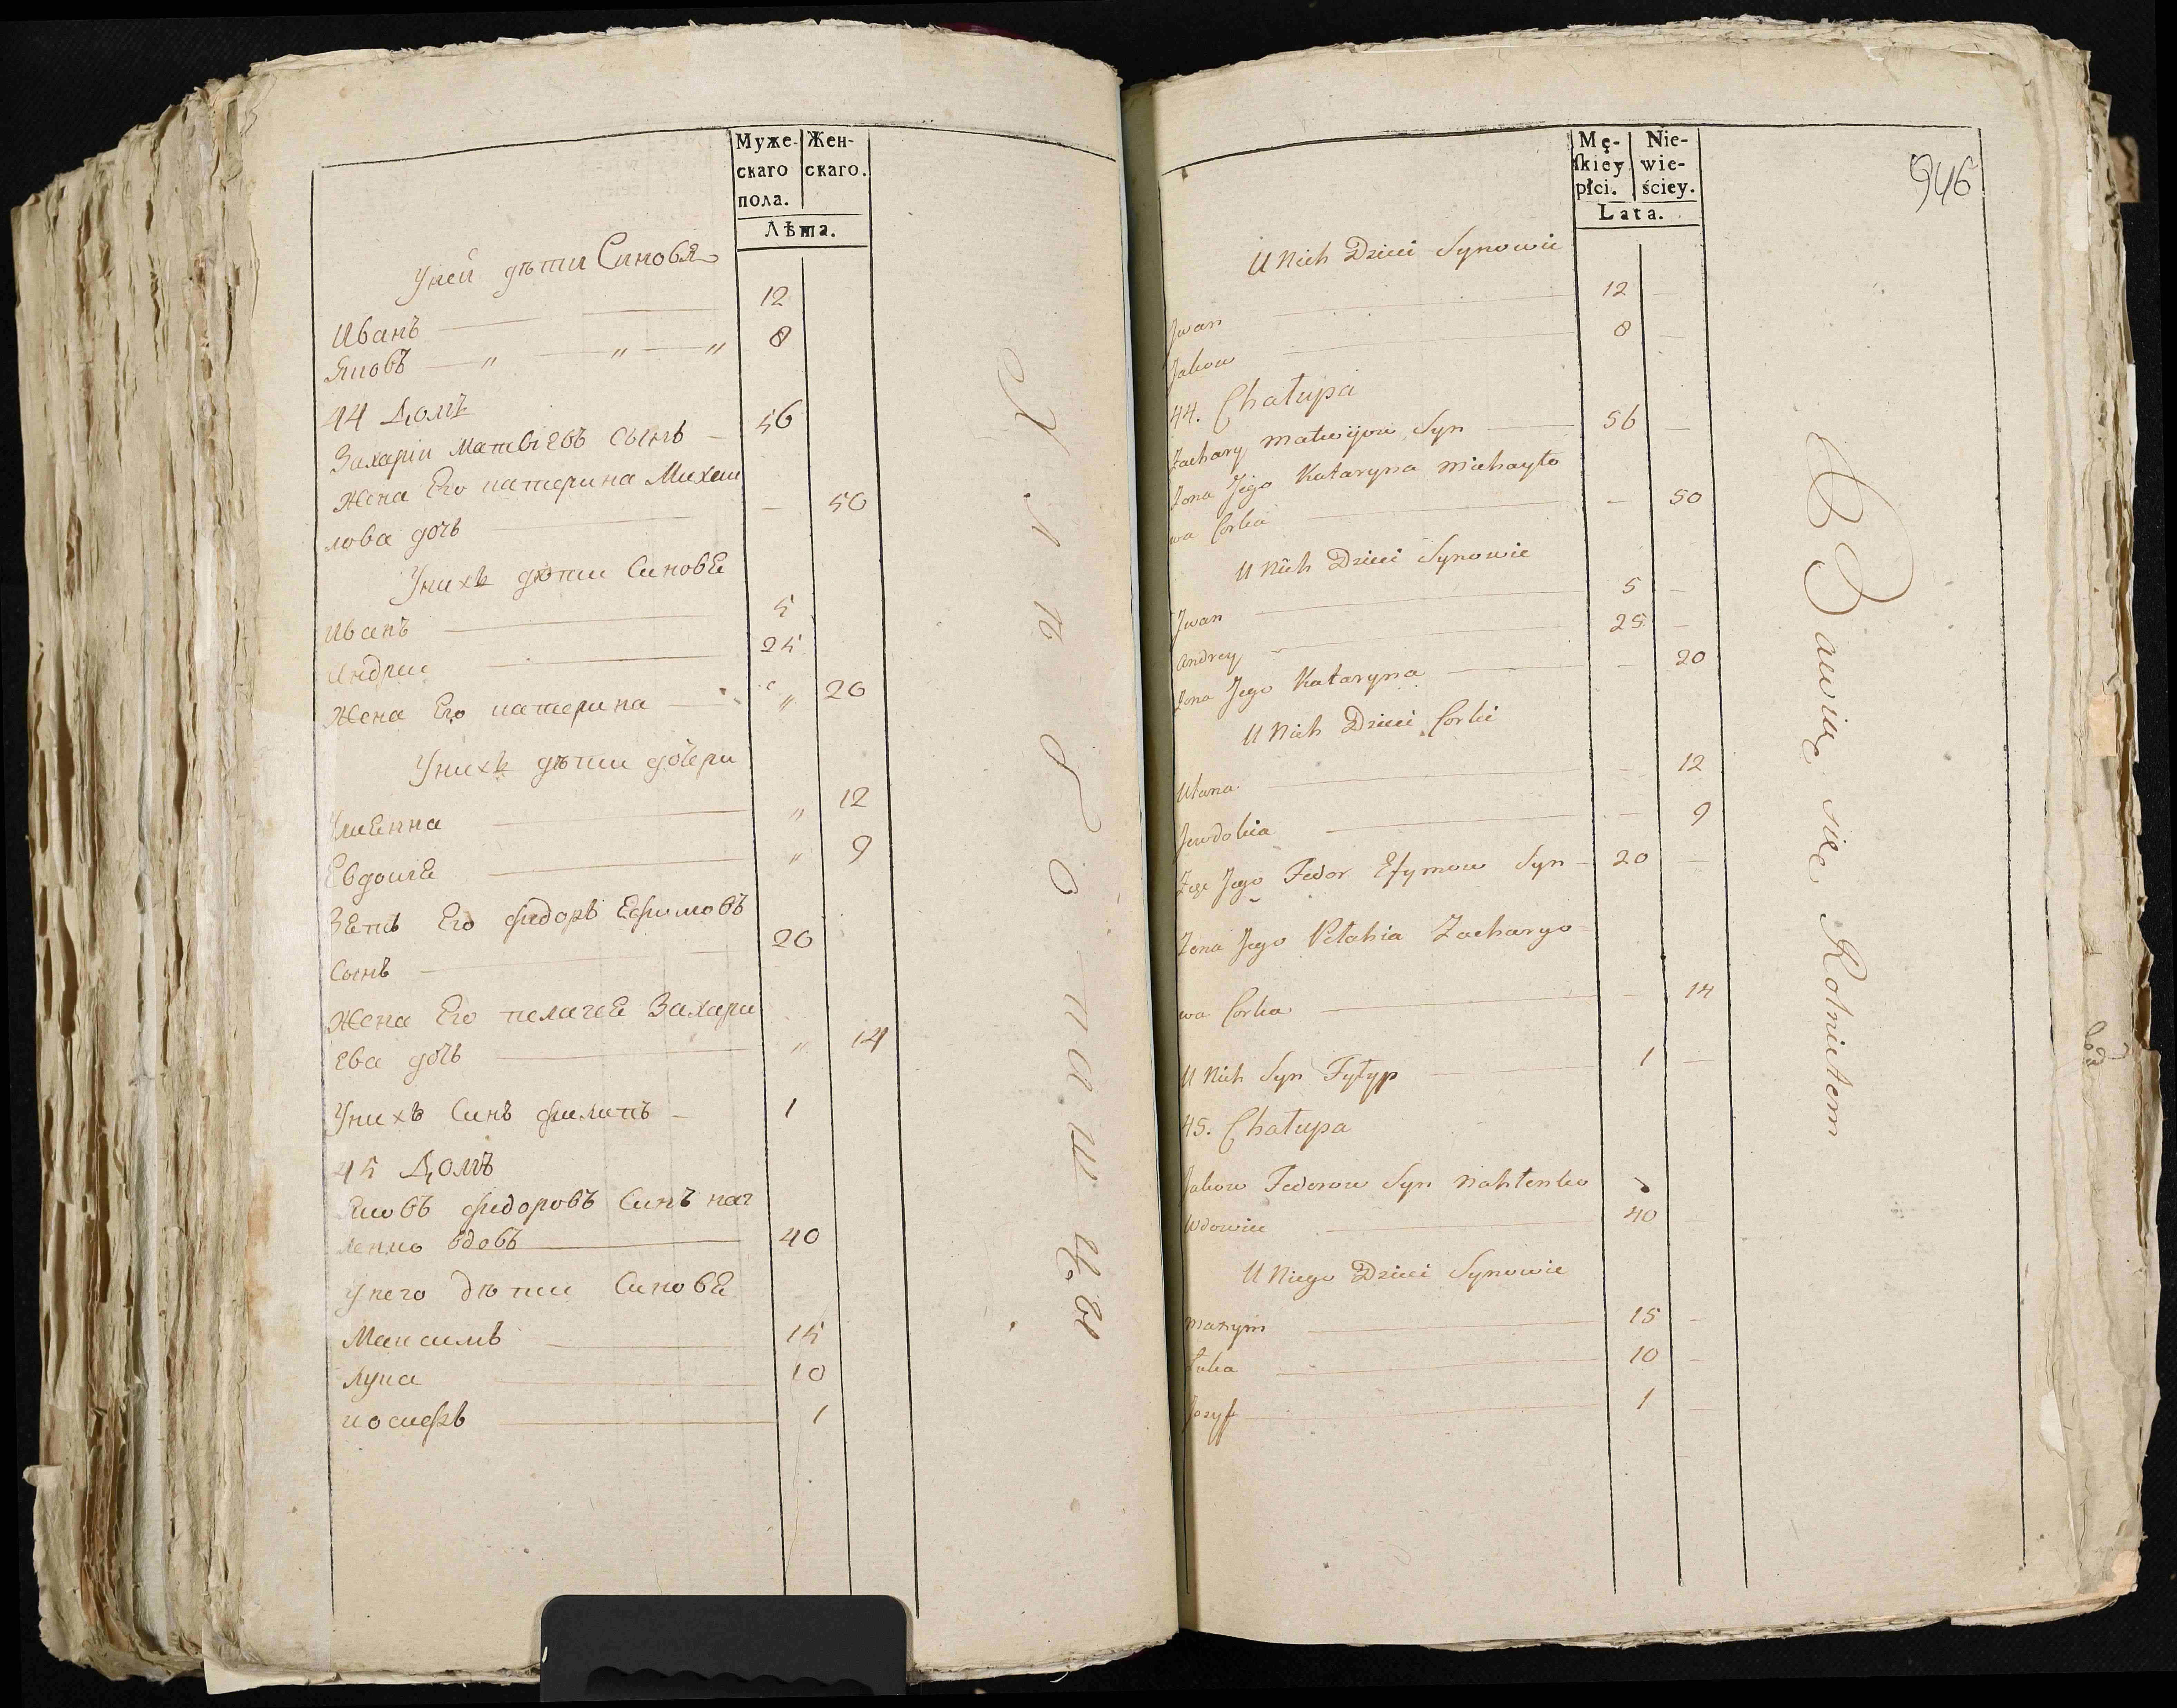 Муже-
скаго
пола.
Жен-
скаго.
Лѣта.
Уней дѣти Синовя
Иванъ 12
Яковъ 8
44 Домъ
Захарiи Матвiевъ Сынъ 56
Жена Его катерина Михаи
лова дочь — 50
Унихъ дѣти Синовя
Иванъ 5
Андрии 25
Жена Его катерина 20
Унихъ дѣти дочери
Улиянна 12
Евдокия 9
Зять Его фидоръ Ефимовъ
Сынъ 20
Жена Его пелагея Захари
ева дочь 14
Унихъ Синъ филипъ 1
45 Домъ
Яковъ фидоровъ Синъ наг
ленко вдовъ 40
Унего дѣти Синовя
Максимъ 15
Лука 10
иосифъ 1
Хлѣбопашцы
Mę-
skiey
płci.
Nie-
wie-
ściey.
Lata.
946
U Nich Dzieci Synowie
Jwan 12 —
Jakow 8 —
44. Chałupa
Zachary Matwijow Syn 56 —
Żona Jego Kataryna Michayło
wa Corka — 50
U Nich Dzieci Synowie
Jwan 5 —
Andrey 25 —
Żona Jego Kataryna — 20
U Nich Dzieci Corki
Ulana — 12
Jewdokia — 9
Zięć Jego Fedor Efymow Syn 20 —
Żona Jego Pełahia Zacharyo
wa Corka — 14
U Nich Syn Fyłyp 1 —
45. Chałupa
Jakow Federow Syn Nahlenko
Wdowiec 40
U Niego Dzieci Synowie
Maxym 15 —
Łuka 10 —
Jozyf 1 —
Bawią się Rolnictem